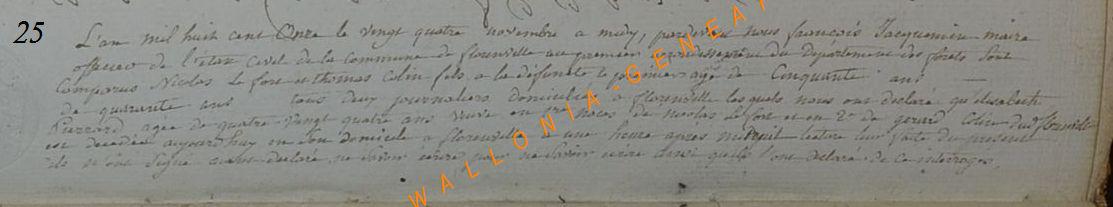 25
L'an mil huit cent Onze le vingt quatre novembre a midy, pardevant nous françois Jacquemin maire
officier de l'état civil de la commune de florenville au premier arrondissement du Departement des forets sont
Comparus Nicolas le fort et thomas Colin fils a la défunte le premier agé de Cinquante ans
de quarante ans tous deux journaliers domiciliés a florenville lesquels nous ont declaré qu'elisabeth
agée de quatre vingt quatre ans veuve en 1re noces de nicolas Lefort et en 2e de gerard Colin dud florenville
est decedée aujourd'huy en son domicile a florenville a une heure apres minuit lecture leur faite du present
ils n'ont signé ayant declaré ne savoir écrire pour ne savoir écrire ainsi qu'ils l'ont declaré de ce interrogés
WALLONIA.GENEA